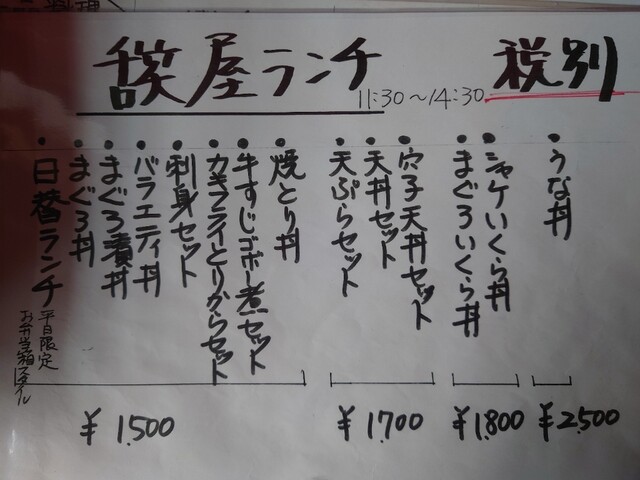 料理
屋ランチ
11:30～14:30
税別
・うな丼
¥2,500
・シャケいくら丼
・まぐろいくら丼
¥1,800
・穴子天丼セット
・天丼セット
・天ぷらセット
¥1,700
・焼とり丼
・牛すじゴボー煮セット
・カキフライとりからセット
・刺身セット
・バラエティ丼
・まぐろ漬丼
・まぐろ丼
・日替ランチ
平日限定
お弁当箱スタイル
¥1,500